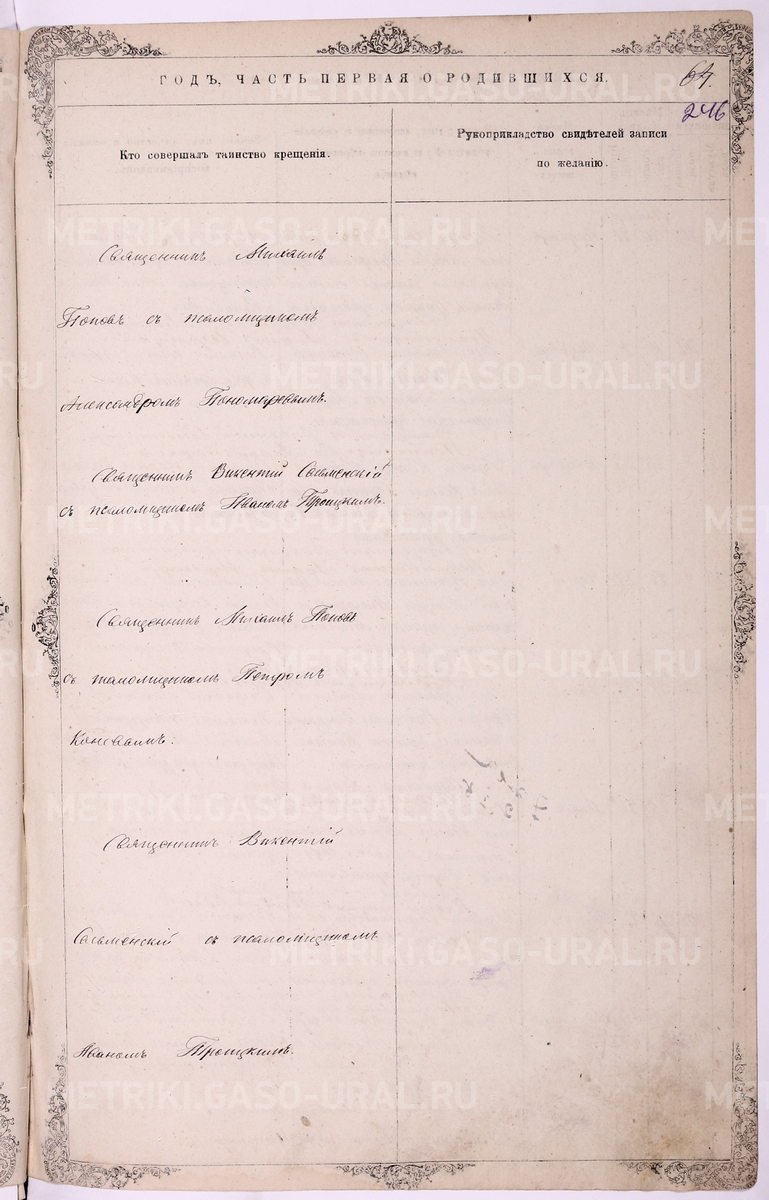 ГОДЪ, ЧАСТЬ ПЕРВАЯ О РОДИВШИХСЯ.
64.
246
Кто совершалъ таинство крещенія.
Рукоприкладство свидѣтелей записи
по желанію.
Священникъ Михаилъ
Поповъ съ псаломщикомъ
Александромъ Пономаревымъ.
Священникъ Викентій Сасьменскій
съ псаломщикомъ Иваномъ Троицкимъ.
Священникъ Михаилъ Поповъ
съ псаломщикомъ Петромъ
Священникъ Викентій
съ псаломщикомъ
Иваномъ Троицкимъ.
METRIKI.GASO-URAL.RU